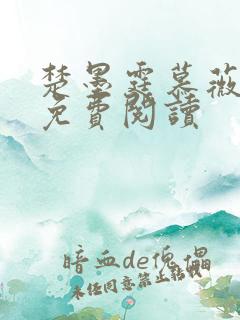 楚墨霆慕薇
免費閱讀
暗血de傀儡
未経同意禁止轉載